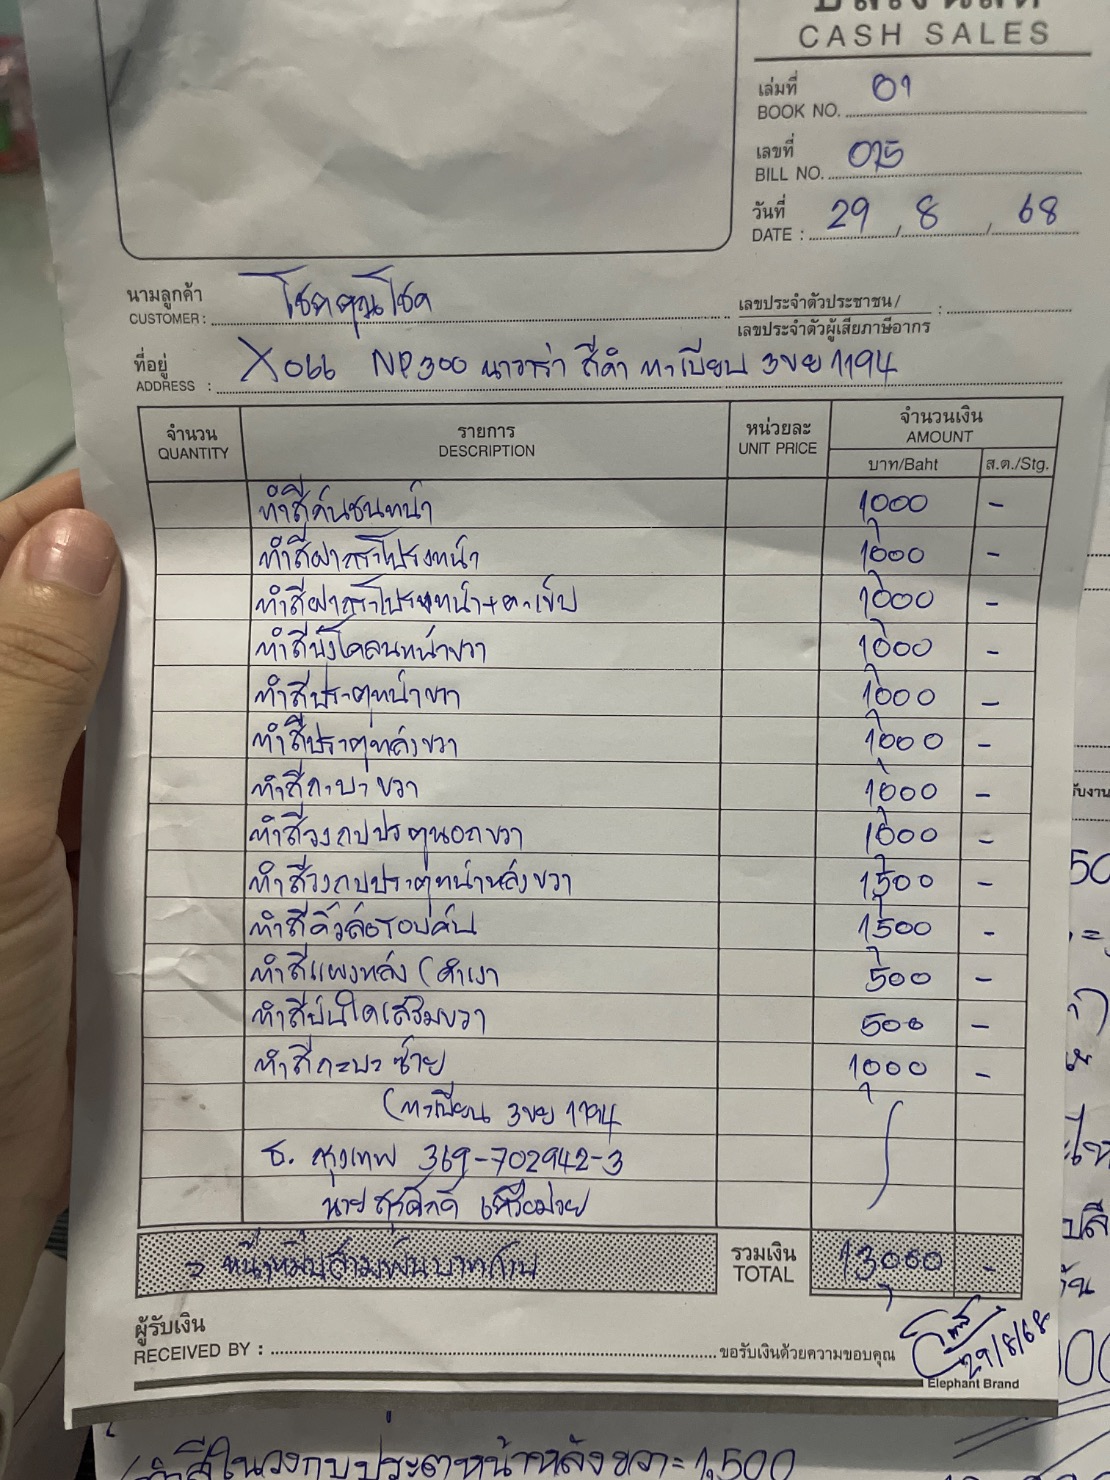 บิลเงินสด
CASH SALES
เล่มที่ 01
BOOK NO.
เลขที่ 015
BILL NO.
วันที่ 29 / 8 / 68
DATE :
นามลูกค้า โชคคุณโชค
CUSTOMER :
เลขประจำตัวประชาชน / :
เลขประจำตัวผู้เสียภาษีอากร
ที่อยู่ NP300 นาวาร่า สีดำ ทะเบียน 3ขย 1194
ADDRESS :
จำนวน รายการ หน่วยละ จำนวนเงิน
QUANTITY DESCRIPTION UNIT PRICE AMOUNT
บาท/Baht ส.ต./Stg.
ทำสีกันชนหน้า 1,000 -
ทำสีฝากระโปรงหน้า 1,000 -
ทำสีฝากระโปรงหน้า+คาเข็บ 1,000 -
ทำสีบังโคลนหน้าขวา 1,000 -
ทำสีประตูหน้าขวา 1,000 -
ทำสีประตูหลังขวา 1,000 -
ทำสีกะบะขวา 1,000 -
ทำสีวงกบประตูนอกขวา 1,000 -
ทำสีวงกบประตูหน้าหลังขวา 1,500 -
ทำสีคิ้วล้อรอบคัน 1,500 -
ทำสีแผงหลัง (ดำเงา 500 -
ทำสีบันไดเสริมขวา 500 -
ทำสีกะบะซ้าย 1,000 -
(ทะเบียน 3ขย 1194
ธ. กรุงเทพ 369-702942-3
นายสุรศักดิ์
= หนึ่งหมื่นสามพันบาทถ้วน รวมเงิน 13,000 -
TOTAL
ผู้รับเงิน
RECEIVED BY : ขอรับเงินด้วยความขอบคุณ
29/8/68
Elephant Brand
ทำสีในวงกบประตูหน้าหลังขวา = 1,500